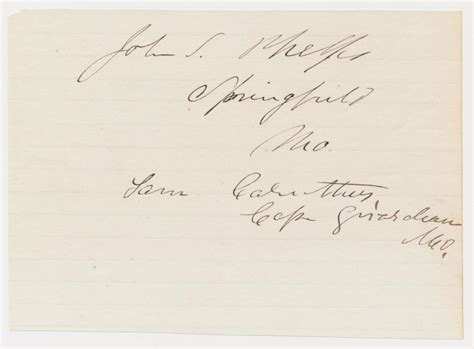 John S. Phelps
Springfield
Mo.
Sam Caruthers
Cape Girardeau
Mo.